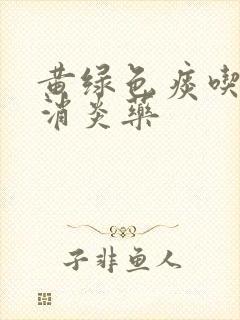 黄绿色痰喫
消炎药
子非鱼人